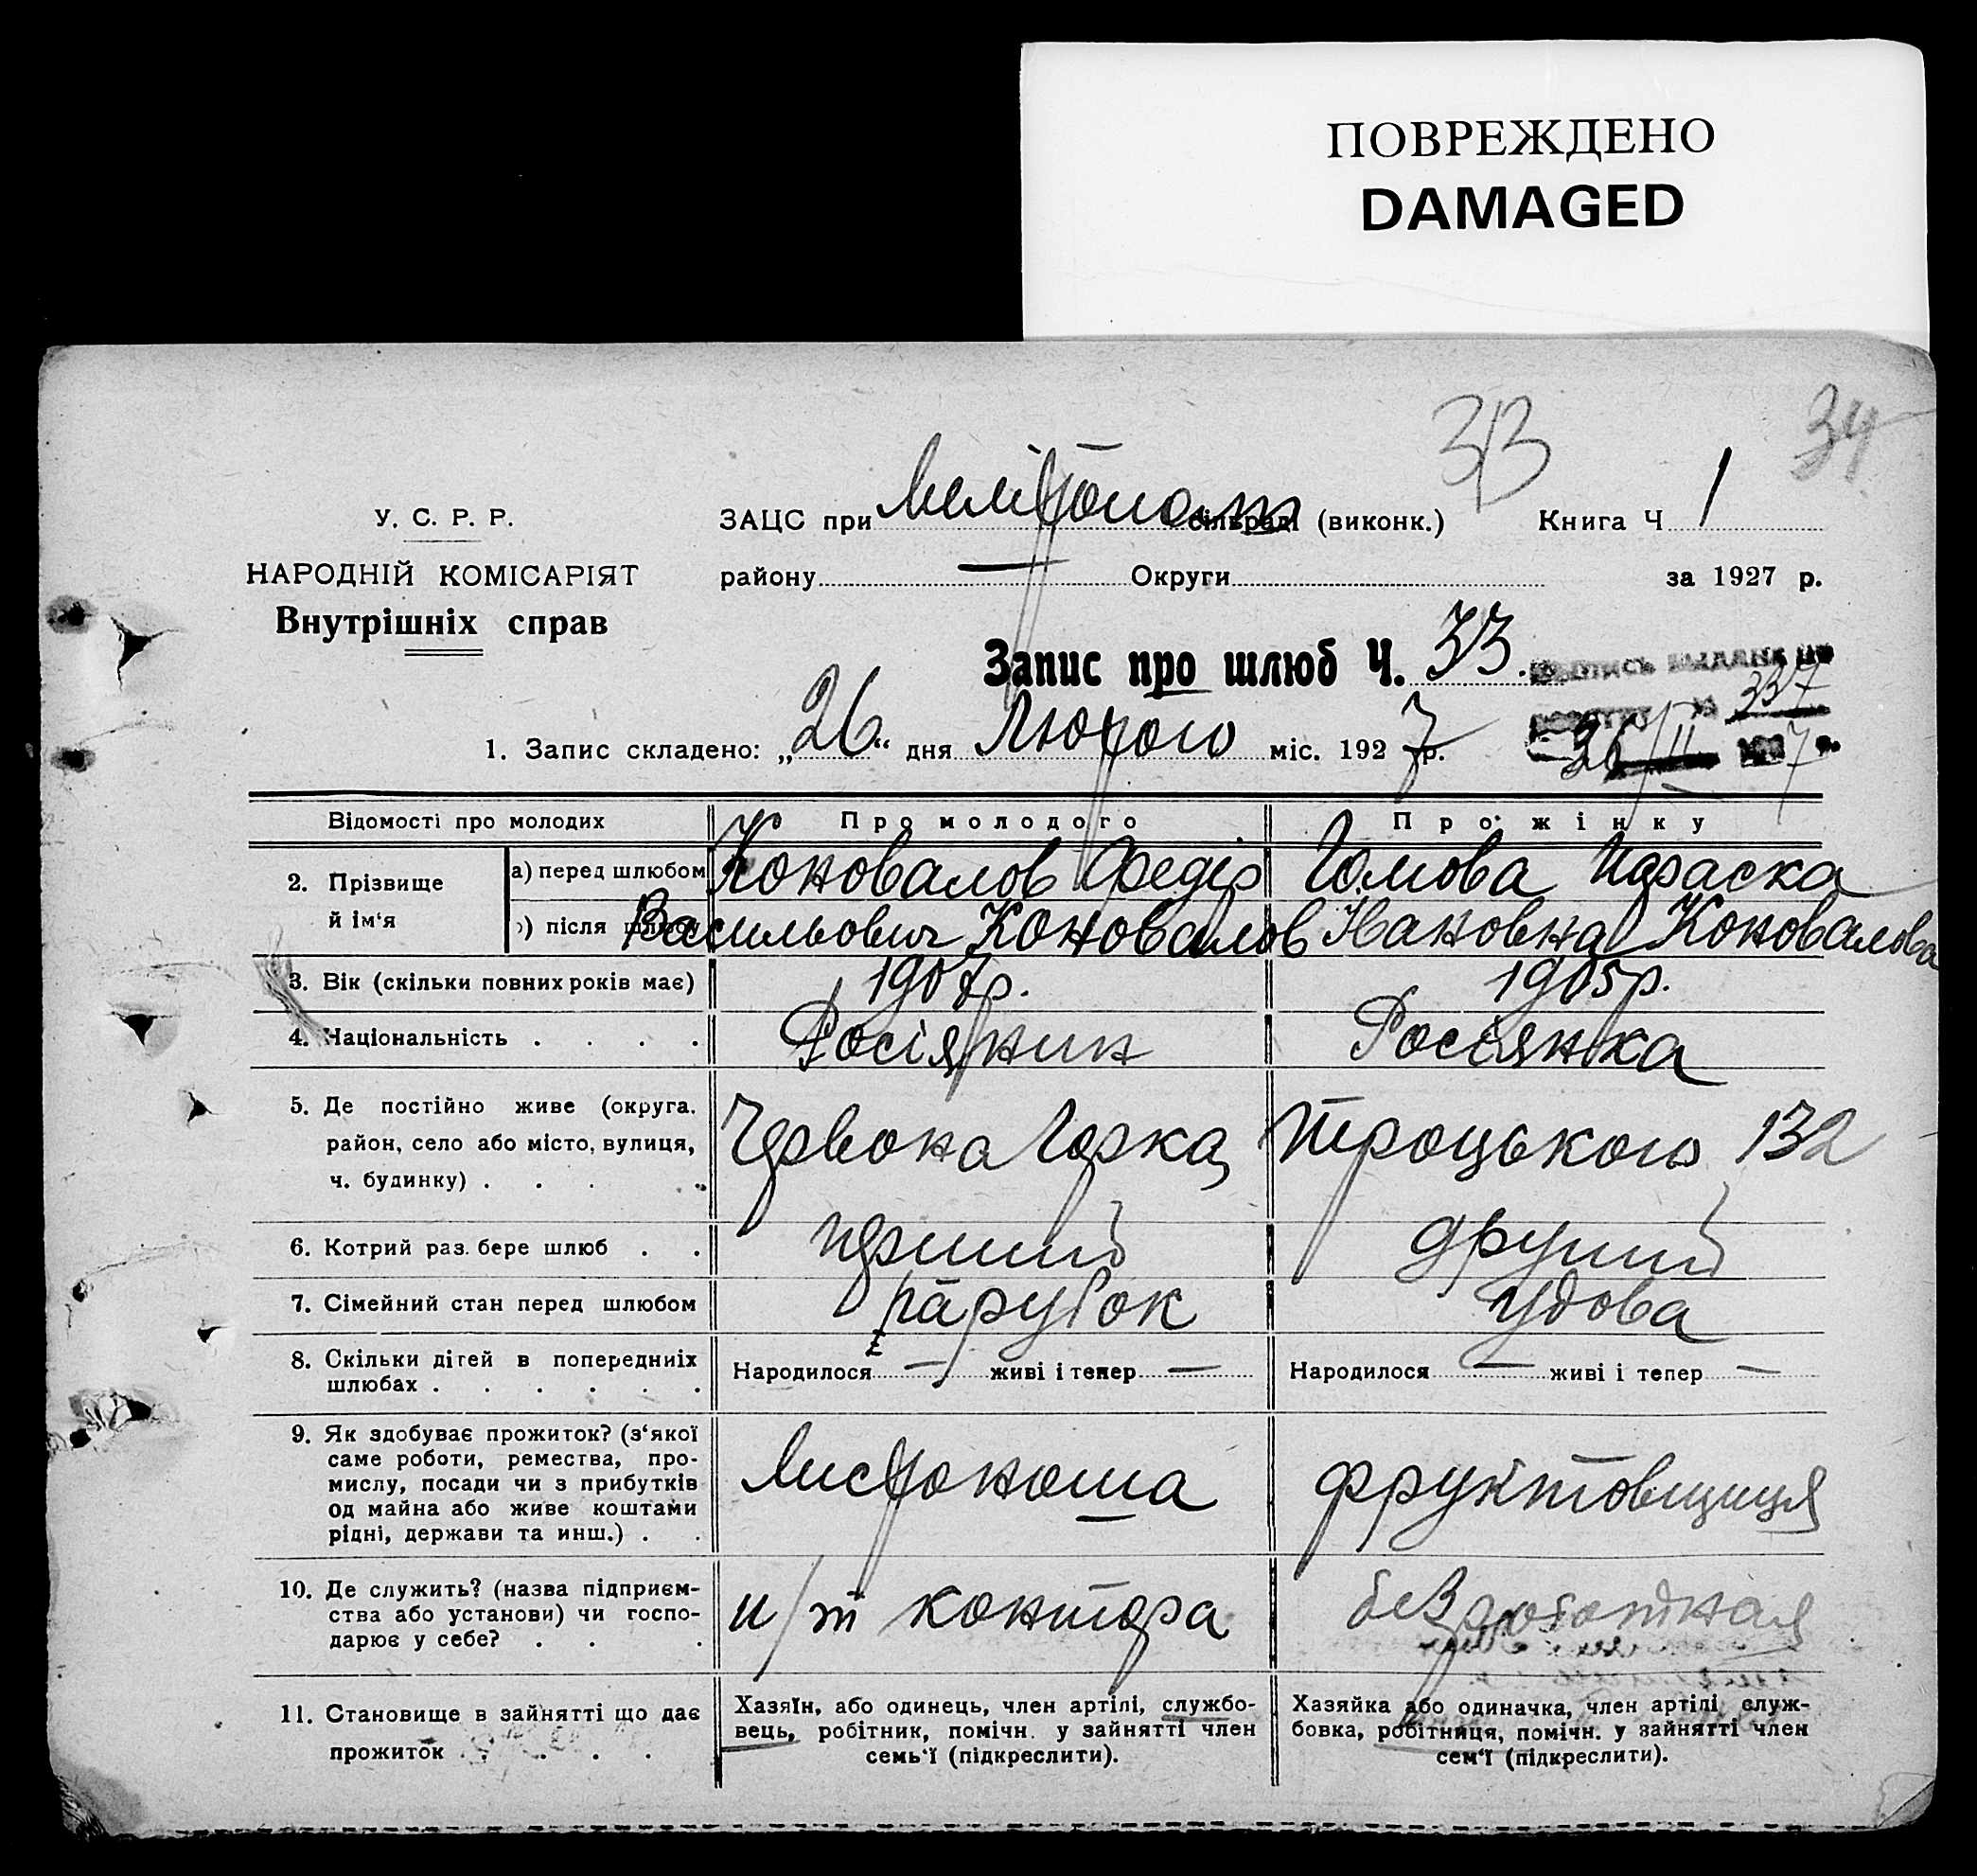 ПОВРЕЖДЕНО
DAMAGED
34
33
У. С. Р. Р.
НАРОДНІЙ КОМІСАРІЯТ
Внутрішніх справ
ЗАЦС при Мелітополі сільраді (виконк.) Книга Ч 1
району — Округи за 1927 р.
Запис про шлюб Ч. 33.
выпись выдана по
337
26/II 1927 г.
1. Запис складено: „26“ дня Лютого міс. 1927 р.
Відомості про молодих Про молодого Про жінку
2. Прізвище й ім‘я
а) перед шлюбом Коновалов Федір Гомова Параска
б) після шлюбу Васильович Коновалов Ивановна Коновалова
3. Вік (скільки повних років має) 1907р. 1905р.
4. Національність . . . . Росіянин Росіянка
5. Де постійно живе (округа,
район, село або місто, вулиця,
ч. будинку) . . . .
Червона Горка Троцького 132
6. Котрий раз. бере шлюб . . перший другий
7. Сімейний стан перед шлюбом парубок удова
8. Скільки дітей в попередниіх
шлюбах . . . . . .
Народилося — живі і тепер — Народилося — живі і тепер —
9. Як здобуває прожиток? (з‘якої
саме роботи, ремества, про-
мислу, посади чи з прибутків
од майна або живе коштами
рідні, держави та инш.) . .
Листоноша фруктовщиця
10. Де служить? (назва підприєм-
ства або установи) чи госпо-
дарює у себе? . . .
п/т контора безработная
11. Становище в зайнятті що дає
прожиток . . . .
Хазяїн, або одинець, член артілі, службо-
вець, робітник, помічн. у зайнятті член
семь‘ї (підкреслити).
Хазяйка або одиначка, член артілі служ-
бовка, робітниця, помічн. у зайнятті член
сем‘ї (підкреслити).